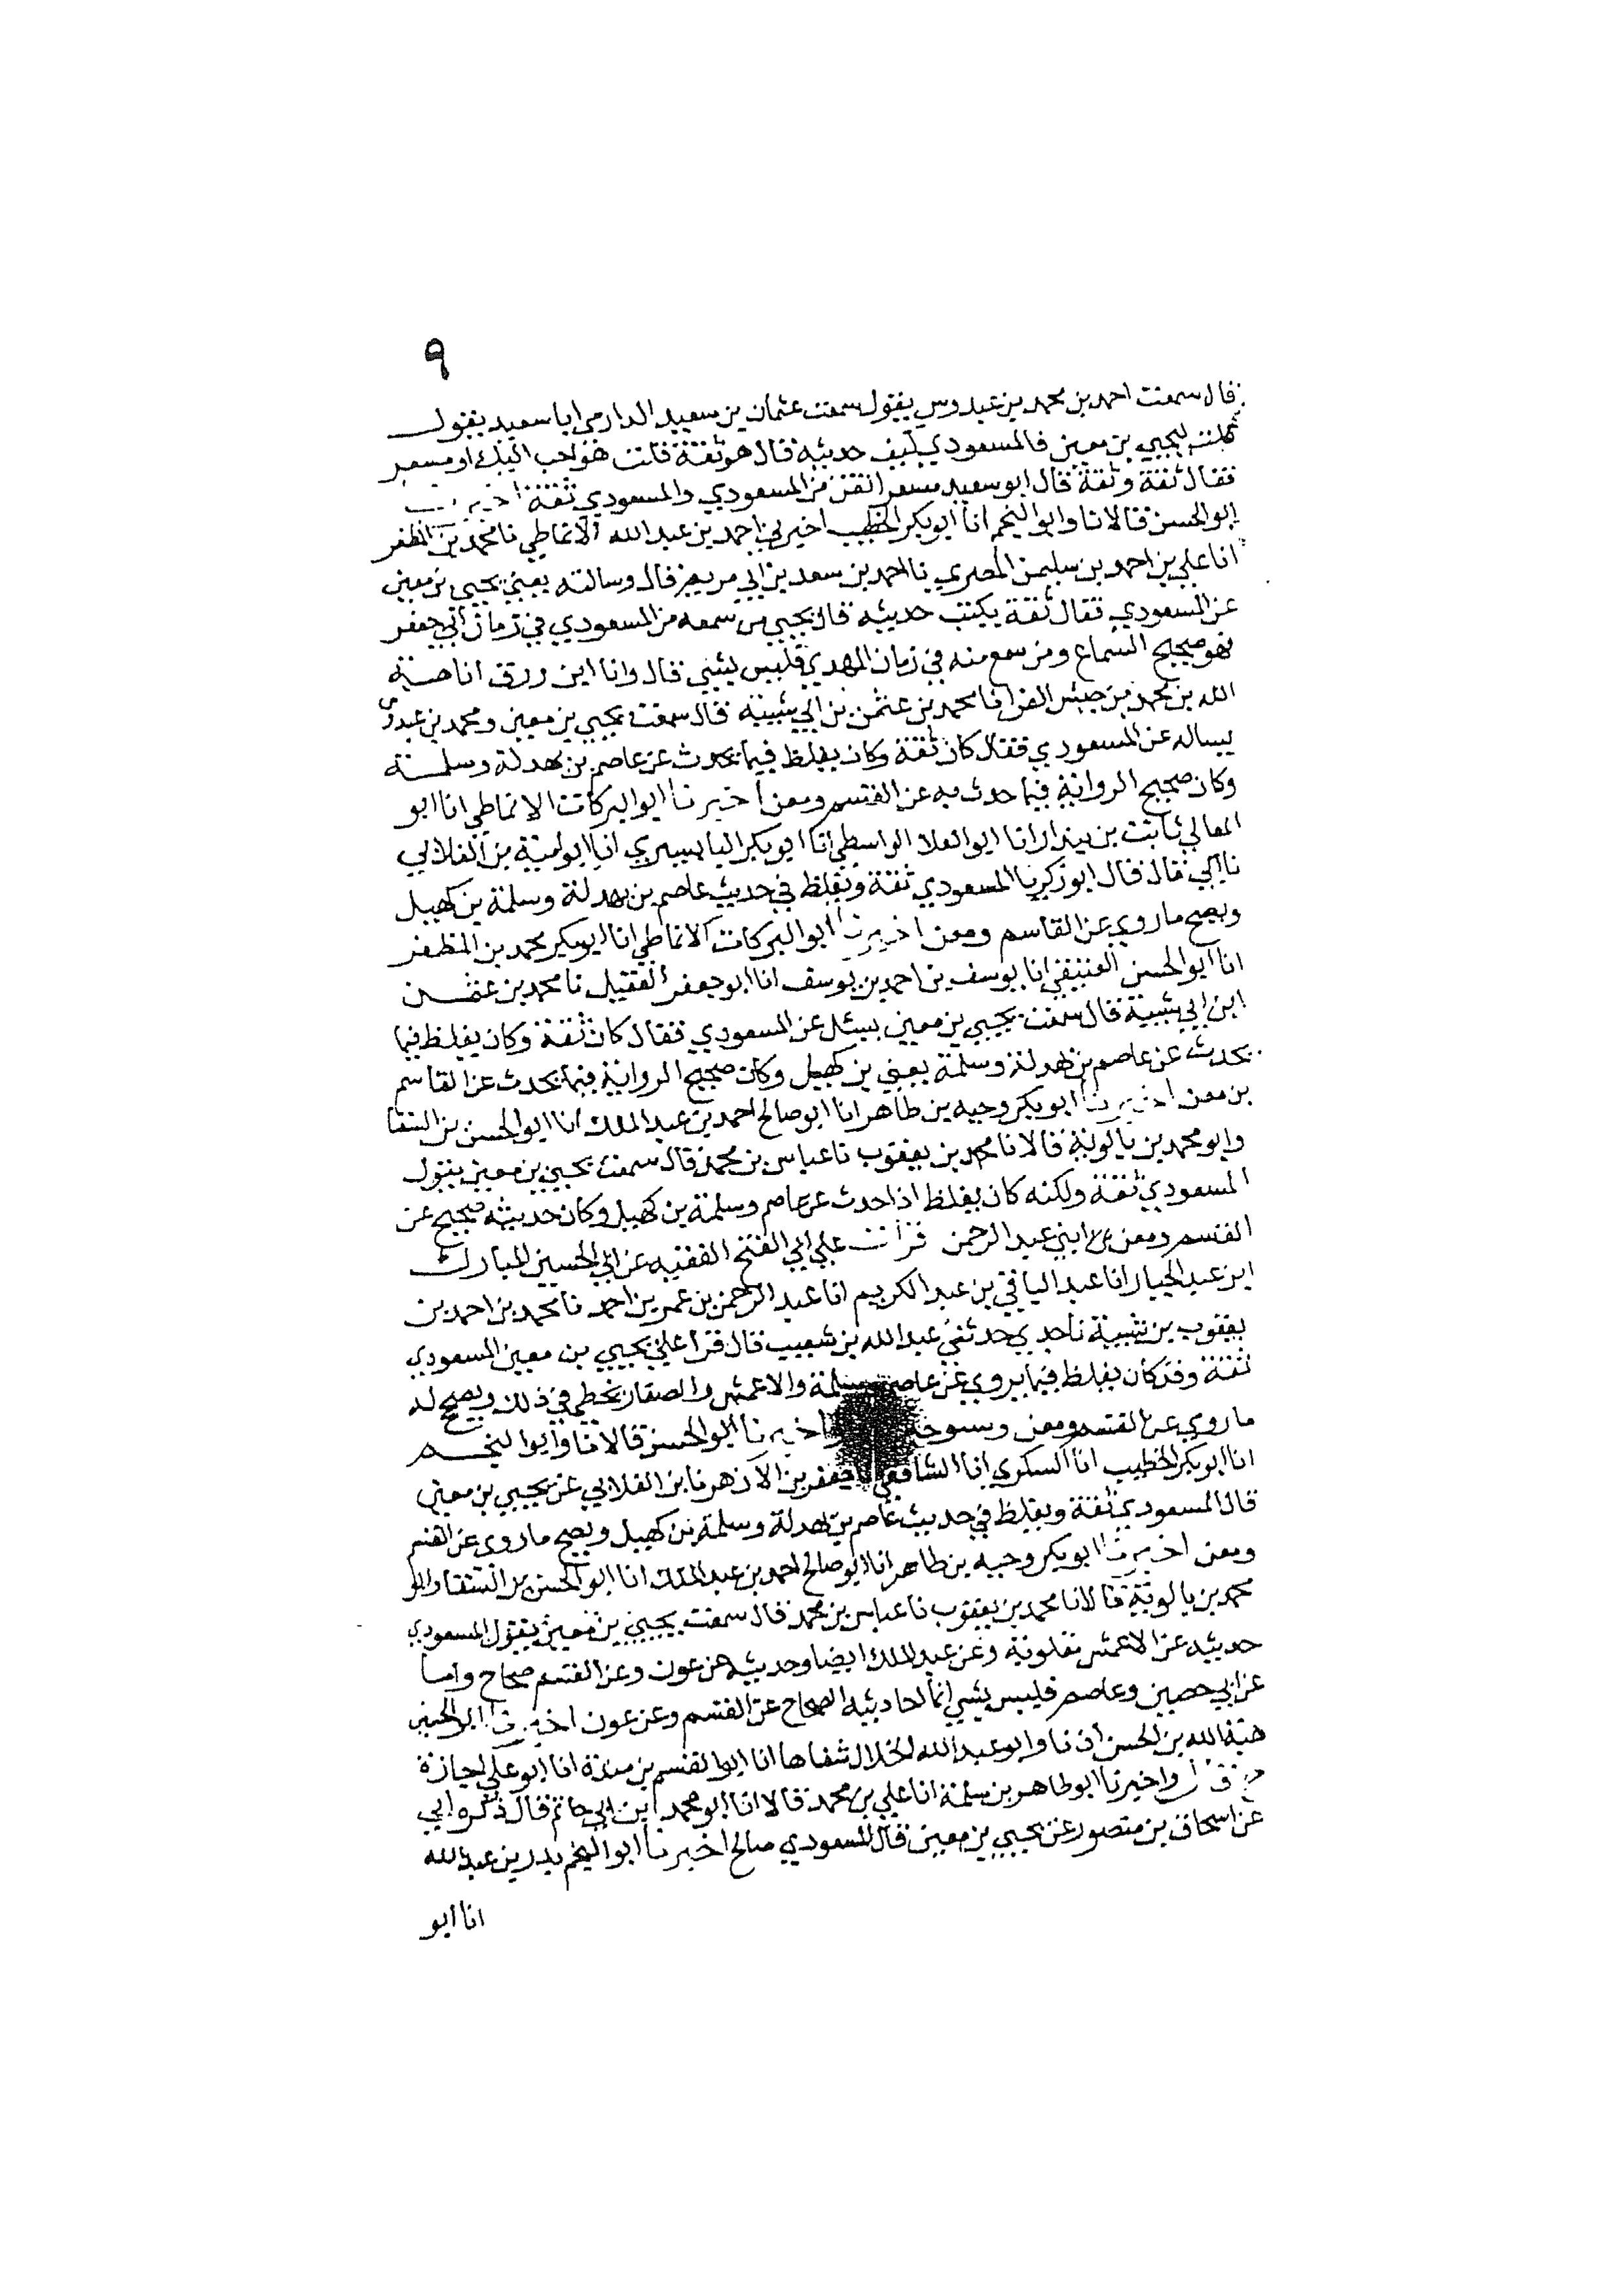 ٩
قال سمعت احمد بن محمد بن عبدوس يقول سمعت عثمان بن سعيد الدارمي ابا سعيد يقول
قلت ليحيى بن معين فالمسعودي كيف حديثه قال هو ثقة قلت هو احب اليك او مسعر
فقال ثقة وثقة قال ابو سعيد مسعر اتقن من المسعودي والمسعودي ثقة اخبرنا
ابو الحسن قالا نا وابو النجم انا ابو بكر الخطيب اخبرني احمد بن عبد الله الانماطي نا محمد بن المظفر
انا علي بن احمد بن سليمن المصري نا احمد بن سعد بن ابي مريم قال وسالته يعني يحيى بن معين
عن المسعودي فقال ثقة يكتب حديثه قال يحيى من سمعه من المسعودي في زمان ابي جعفر
فهو صحيح السماع ومن سمع منه في زمان المهدي فليس بشي قال وانا ابن رزق انا هبة
الله بن محمد بن حبش الفرا نا محمد بن عثمن بن ابي شيبة قال سمعت يحيى بن معين ومحمد بن عبدوس
يساله عن المسعودي فقال كان ثقة وكان يغلط فيما يحدث عن عاصم بن بهدلة وسلمة
وكان صحيح الرواية فيما حدث به عن القسم ومعن اخبرنا ابو البركات الانماطي انا ابو
المعالي ثابت بن بندار انا ابو العلا الواسطي انا ابو بكر البابسيري انا ابو امية بن الغلابي
نا ابي قال قال ابو زكريا المسعودي ثقة ويغلط في حديث عاصم بن بهدلة وسلمة بن كهيل
ويصح ما روى عن القاسم ومعن اخبرنا ابو البركات الانماطي انا ابو بكر محمد بن المظفر
انا ابو الحسن العتيقي انا يوسف بن احمد بن يوسف انا ابو جعفر العقيلي نا محمد بن عثمن
ابن ابي شيبة قال سمعت يحيى بن معين يسئل عن المسعودي فقال كان ثقة وكان يغلط فيما
يحدث عن عاصم بن بهدلة وسلمة يعني بن كهيل وكان صحيح الرواية فيما يحدث عن القاسم
بن معن اخبرنا ابو بكر وجيه بن طاهر انا ابو صالح احمد بن عبد الملك انا ابو الحسن بن السقا
وابو محمد بن بالوية قالا نا محمد بن يعقوب نا عباس بن محمد قال سمعت يحيى بن معين يقول
المسعودي ثقة ولكنه كان يغلط اذا حدث عن عاصم وسلمة بن كهيل وكان حديثه صحيح عن
القسم ومعن ابني عبد الرحمن قرات على ابي الفتح الفقيه عن ابي الحسين المبارك
ابن عبد الجبار انا عبد الباقي بن عبد الكريم انا عبد الرحمن بن عمر بن احمد نا محمد بن احمد بن
يعقوب بن شيبة نا جدي حدثني عبد الله بن شعيب قال قرا علي يحيى بن معين المسعودي
ثقة وقد كان يغلط فيما يروي عن عاصم وسلمة والاعمش والصغار يخطي في ذلك ويصح له
ما روى عن القسم ومعن وشيوخه اخبرنا ابو الحسن قالا نا وابو النجم
انا ابو بكر الخطيب انا السكري انا الشافعي نا جعفر بن الازهر نا بن الغلابي عن يحيى بن معين
قال المسعودي ثقة ويغلط في حديث عاصم بن بهدلة وسلمة بن كهيل ويصح ما روى عن القسم
ومعن اخبرنا ابو بكر وجيه بن طاهر انا ابو صالح احمد بن عبد الملك انا ابو الحسن بن السقا وابو
محمد بن بالوية قالا نا محمد بن يعقوب نا عباس بن محمد قال سمعت يحيى بن معين يقول المسعودي
حديثه عن الاعمش مقلوبة وعن عبد الملك ايضا وحديثه عن عون وعن القسم صحاح واما
عن ابي حصين وعاصم فليس بشي انما احاديثه الصحاح عن القسم وعن عون اخبرنا ابو الحسين
هبة الله بن الحسن اذنا وابو عبد الله الخلال شفاها انا ابو القسم بن مندة انا ابو علي اجازة
ح قال واخبرنا ابو طاهر بن سلمة انا علي بن محمد قالا انا ابو محمد ابن ابي حاتم قال ذكره ابي
عن اسحاق بن منصور عن يحيى بن معين قال المسعودي صالح اخبرنا ابو النجم بدر بن عبد الله
انا ابو